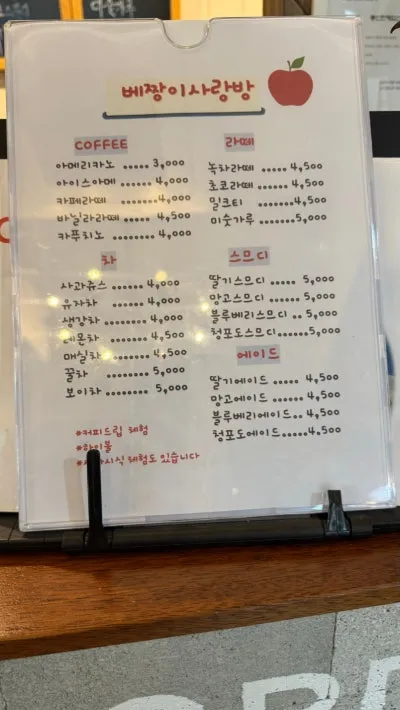 베짱이사랑방
COFFEE
아메리카노 ..... 3,000
아이스아메 ...... 4,000
카페라떼 .......4,000
바닐라라떼 ..... 4,500
카푸치노 ........ 4,000
차
사과쥬스 ..... 4,000
유자차 ...... 4,000
생강차 ...... 4,000
레몬차 ...... 4,500
매실차 ...... 4,500
꿀차 ........ 5,000
보이차 ........ 5,000
#커피드립 체험
시식 체험도 있습니다
라떼
녹차라떼 ..... 4,500
초코라떼 ...... 4,500
밀크티 ....... 4,500
미숫가루 .......5,000
스므디
딸기스므디 ..... 5,000
망고스므디 ...... 5,000
블루베리스므디 .. 5,000
청포도스므디......5,000
에이드
딸기에이드 ..... 4,500
망고에이드 ...... 4,500
블루베리에이드.. 4,500
청포도에이드......4.500